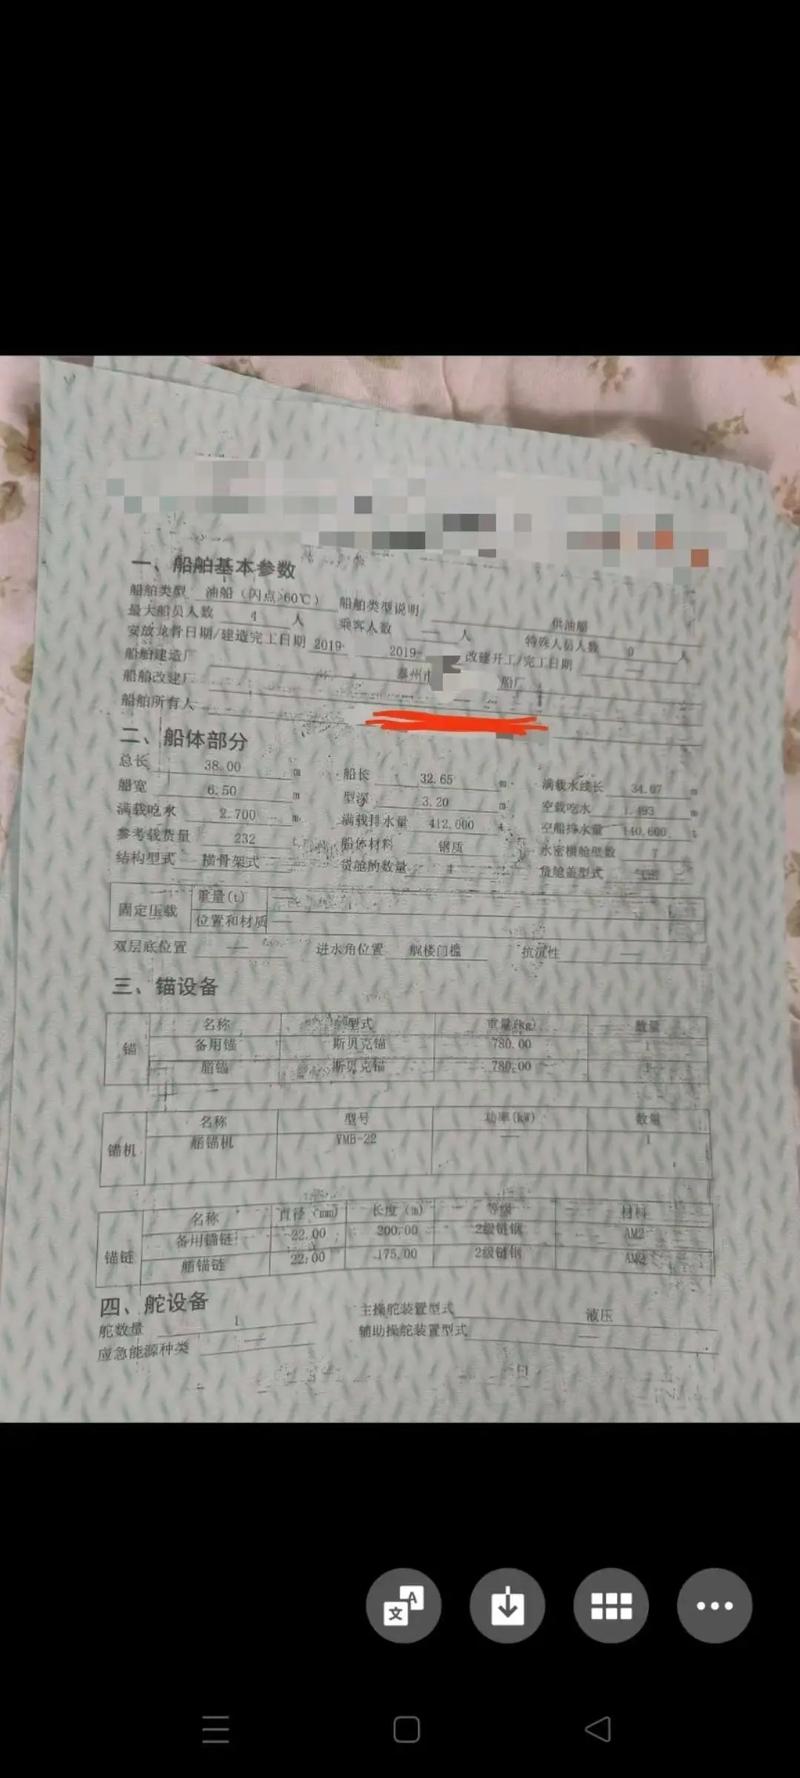 一、船舶基本参数
船舶类型 油船（闪点>60℃） 船舶类型说明 供油船
最大船员人数 4 人 乘客人数 — 人 特殊人员人数 0 人
安放龙骨日期/建造完工日期 2019- 2019- 改建开工/完工日期
船舶建造厂 泰州市 船厂
船舶改建厂 —
船舶所有人
二、船体部分
总长 38.00 m 船长 32.65 m 满载水线长 34.07 m
船宽 6.50 m 型深 3.20 m 空载吃水 1.493 m
满载吃水 2.700 m 满载排水量 412.000 t 空船排水量 140.600 t
参考载货量 232 t 船体材料 钢质 水密横舱壁数 7
结构型式 横骨架式 货舱的数量 4 货舱盖型式
固定压载 重量(t) —
位置和材质 —
双层底位置 — 进水角位置 艉楼门槛 抗沉性 —
三、锚设备
锚 名称 型式 重量(kg) 数量
备用锚 斯贝克锚 780.00 1
艏锚 斯贝克锚 780.00 1
锚机 名称 型号 功率(kW) 数量
艏锚机 YMB-22 — 1
锚链 名称 直径(mm) 长度(m) 等级 材料
备用锚链 22.00 200.00 2级链钢 AM2
艏锚链 22.00 175.00 2级链钢 AM2
四、舵设备
舵数量 1 主操舵装置型式 液压
应急能源种类 — 辅助操舵装置型式 —